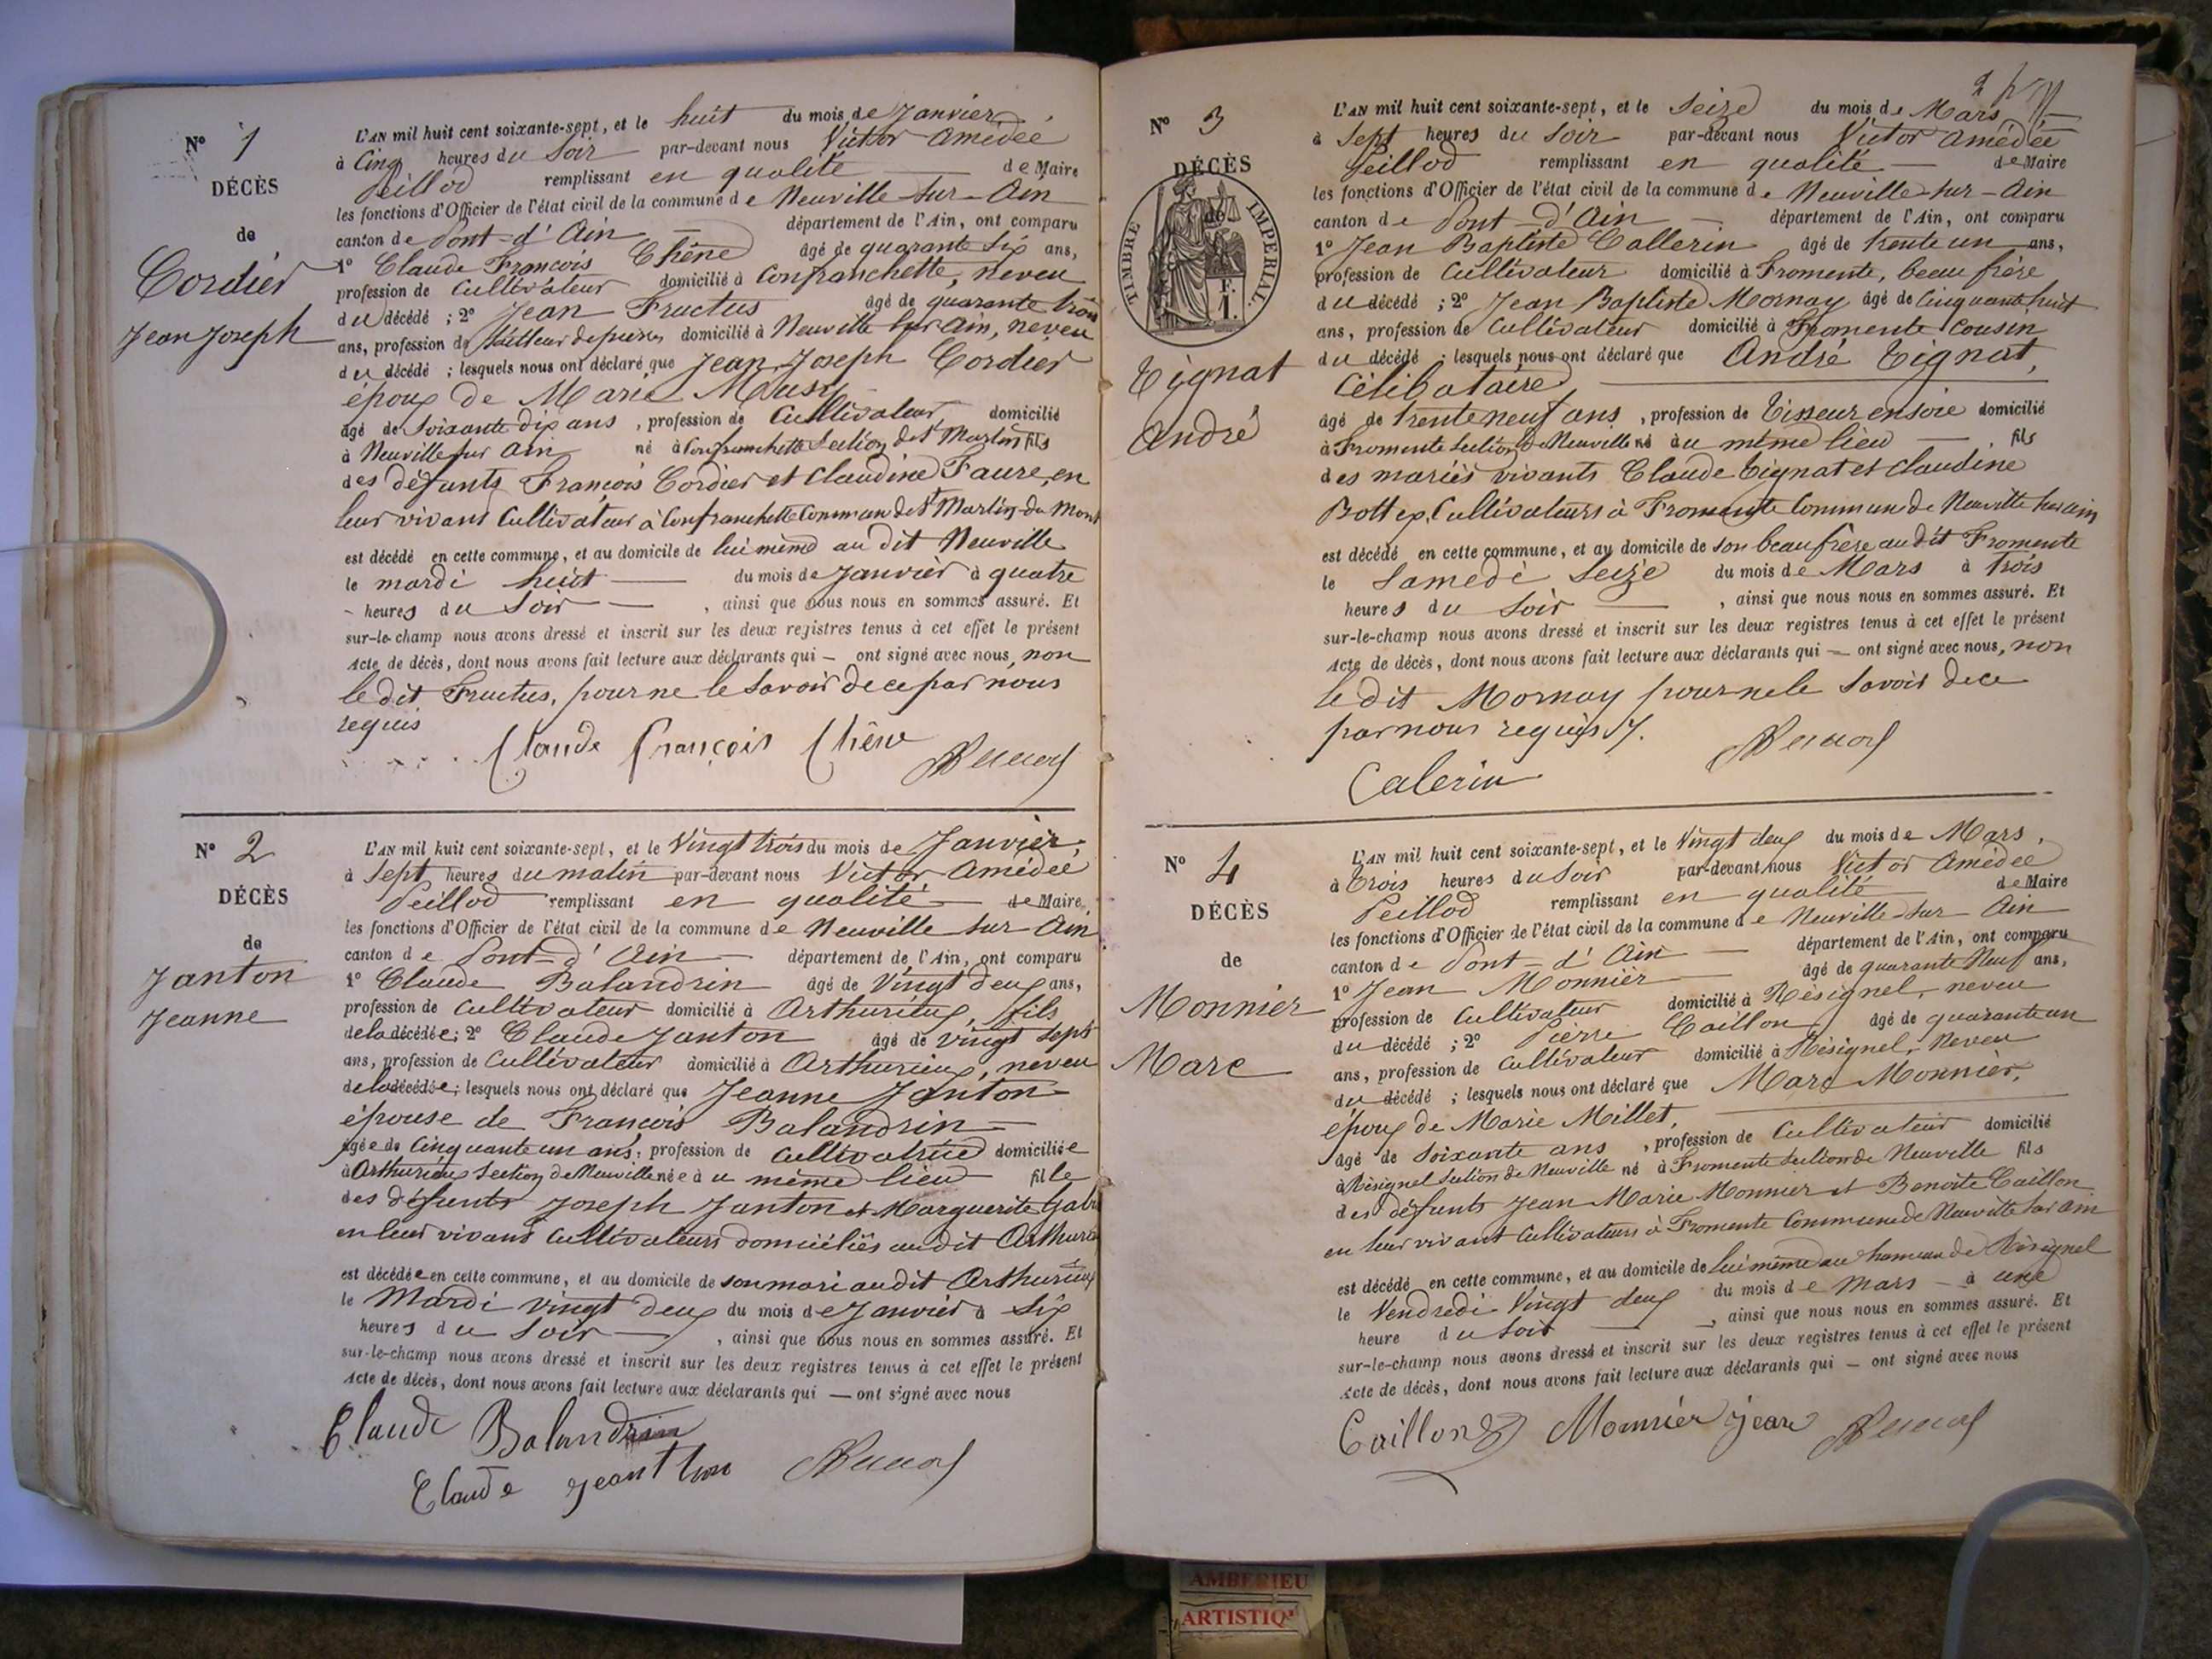 Nº 1
DÉCÈS
de
Cordier
Jean Joseph
L'AN mil huit cent soixante-sept, et le huit du mois de Janvier
à Cinq heures du Soir par-devant nous Victor Amédée
Peillod remplissant en qualité de Maire
les fonctions d'Officier de l'état civil de la commune de Neuville-sur-Ain
canton de Pont-d'Ain département de l'Ain, ont comparu
1º Claude François Chêne âgé de quarante six ans,
profession de Cultivateur domicilié à Confranchette, neveu
du décédé ; 2º Jean Fructus âgé de quarante trois
ans, profession de domicilié à Neuville sur Ain, neveu
du décédé ; lesquels nous ont déclaré que Jean Joseph Cordier
époux de Marie
âgé de Soixante dix ans, profession de Cultivateur domicilié
à Neuville sur Ain né à Confranchette Section de St Martin fils
des défunts François Cordier et Claudine Faure, en
leur vivant Cultivateur à Confranchette Commun de St Martin-du Mont
est décédé en cette commune, et au domicile de lui même au dit Neuville
le mardi huit du mois de Janvier à quatre
heures du Soir, ainsi que nous nous en sommes assuré. Et
sur-le-champ nous avons dressé et inscrit sur les deux registres tenus à cet effet le présent
Acte de décès, dont nous avons fait lecture aux déclarants qui — ont signé avec nous, non
le dit Fructus, pour ne le Savoir de ce par nous
requis
Claude françois Chêne
Nº 2
DÉCÈS
de
Janton
Jeanne
L'AN mil huit cent soixante-sept, et le Vingt trois du mois de Janvier,
à Sept heures du matin par-devant nous Victor Amédée
Peillod remplissant en qualité de Maire
les fonctions d'Officier de l'état civil de la commune de Neuville sur Ain
canton de Pont-d'Ain département de l'Ain, ont comparu
1º Claude Balandrin âgé de Vingt deux ans,
profession de Cultivateur domicilié à Arthurieux, fils
de la décédée ; 2º Claude Janton âgé de vingt sept
ans, profession de Cultivateur domicilié à Arthurieux, neveu
de la décédée ; lesquels nous ont déclaré que Jeanne Janton
épouse de François Balandrin
âgée de Cinquante un ans, profession de Cultivatrice domiciliée
à Arthurieux Section de Neuville née au même lieu fille
des défunts Joseph Janton et Marguerite
en leur vivant Cultivateurs domiciliés audit
est décédée en cette commune, et au domicile de son mari au dit Arthurieux
le Mardi vingt deux du mois de Janvier à Six
heures du Soir, ainsi que nous nous en sommes assuré. Et
sur-le-champ nous avons dressé et inscrit sur les deux registres tenus à cet effet le présent
Acte de décès, dont nous avons fait lecture aux déclarants qui — ont signé avec nous
Claude Balandrin
Claude
Nº 3
DÉCÈS
de
TIMBRE IMPÉRIAL
F.
1.
Tignat
André
L'AN mil huit cent soixante-sept, et le Seize du mois de Mars
à Sept heures du Soir par-devant nous Victor Amédée
Peillod remplissant en qualité de Maire
les fonctions d'Officier de l'état civil de la commune de Neuville-sur-Ain
canton de Pont-d'Ain département de l'Ain, ont comparu
1º Jean Baptiste Callerin âgé de trente un ans,
profession de Cultivateur domicilié à Fromente, beau frère
du décédé ; 2º Jean Baptiste Mornay âgé de Cinquante huit
ans, profession de Cultivateur domicilié à Fromente Cousin
du décédé ; lesquels nous ont déclaré que André Tignat,
Célibataire
âgé de trente neuf ans, profession de Tisseur en soie domicilié
à Fromente Section de Neuville né au même lieu, fils
des mariés vivants Claude Tignat et Claudine
Bottex, Cultivateurs à Fromente Commune de Neuville sur ain
est décédé en cette commune, et au domicile de son beau frère au dit Fromente
le Samedi Seize du mois de Mars à trois
heures du Soir, ainsi que nous nous en sommes assuré. Et
sur-le-champ nous avons dressé et inscrit sur les deux registres tenus à cet effet le présent
Acte de décès, dont nous avons fait lecture aux déclarants qui — ont signé avec nous, non
le dit Mornay pour ne le Savoir de ce
par nous requis
Calerin
Nº 4
DÉCÈS
de
Monnier
Marc
L'AN mil huit cent soixante-sept, et le Vingt deux du mois de Mars,
à Trois heures du Soir par-devant nous Victor Amédée
Peillod remplissant en qualité de Maire
les fonctions d'Officier de l'état civil de la commune de Neuville-sur-Ain
canton de Pont-d'Ain département de l'Ain, ont comparu
1º Jean Monnier âgé de quarante Neuf ans,
profession de Cultivateur domicilié à Résignel, neveu
du décédé ; 2º Pierre Caillon âgé de quarante un
ans, profession de Cultivateur domicilié à Résignel, Neveu
du décédé ; lesquels nous ont déclaré que Marc Monnier,
époux de Marie Millet,
âgé de Soixante ans, profession de Cultivateur domicilié
à Résignel Section de Neuville né à Fromente Section de Neuville fils
des défunts Jean Marie Monnier et Benoite Caillon
en leur vivant Cultivateurs à Fromente Commune de Neuville sur ain
est décédé en cette commune, et au domicile de lui même au hameau de Résignel
le Vendredi Vingt deux du mois de Mars à une
heure du Soir, ainsi que nous nous en sommes assuré. Et
sur-le-champ nous avons dressé et inscrit sur les deux registres tenus à cet effet le présent
Acte de décès, dont nous avons fait lecture aux déclarants qui — ont signé avec nous
Caillon Monnier jean
AMBERIEU
ARTISTIQ